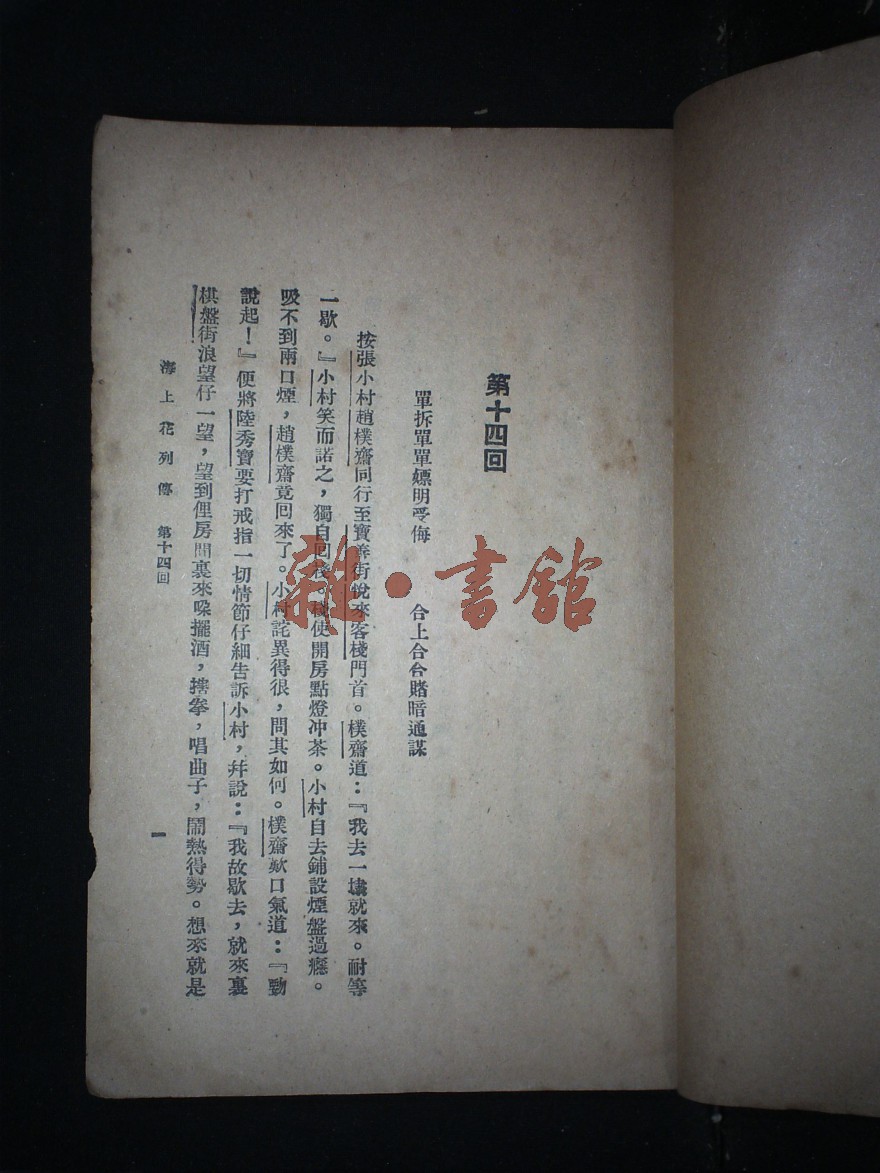 第十四回
單拆單單嫖明受侮 合上合合賭暗通謀
按張小村趙樸齋同行至寶善街悅來客棧門首。樸齋道：『我去一埭就來。耐等
一歇。』小村笑而諾之，獨自回棧，棧使開房點燈冲茶。小村自去鋪設煙盤過癮。
吸不到兩口煙，趙樸齋竟回來了。小村詫異得很，問其如何。樸齋歎口氣道：『勁
說起！』便將陸秀寶要打戒指一切情節仔細告訴小村，幷說：『我故歇去，就來裏
棋盤街浪望仔一望，望到俚房間裏來哚擺酒，搳拳，唱曲子，鬧熱得勢。想來就是
海上花列傳 第十四回
一
雜·書館